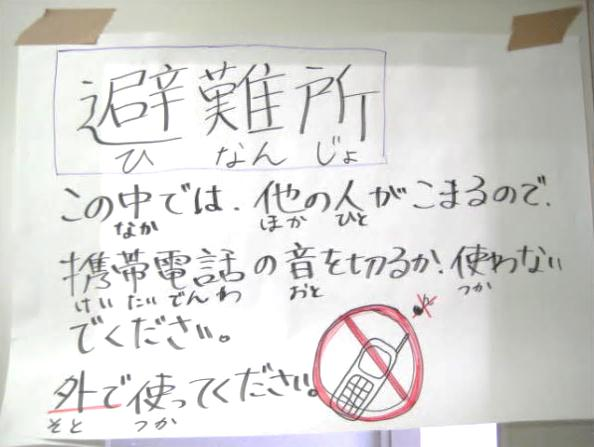 避難所
ひ なん じょ
この中では、他の人がこまるので、
なか ほか ひと
携帯電話の音を切るか、使わない
けい たい でん わ おと つか
でください。
外で使ってください。
そと つか